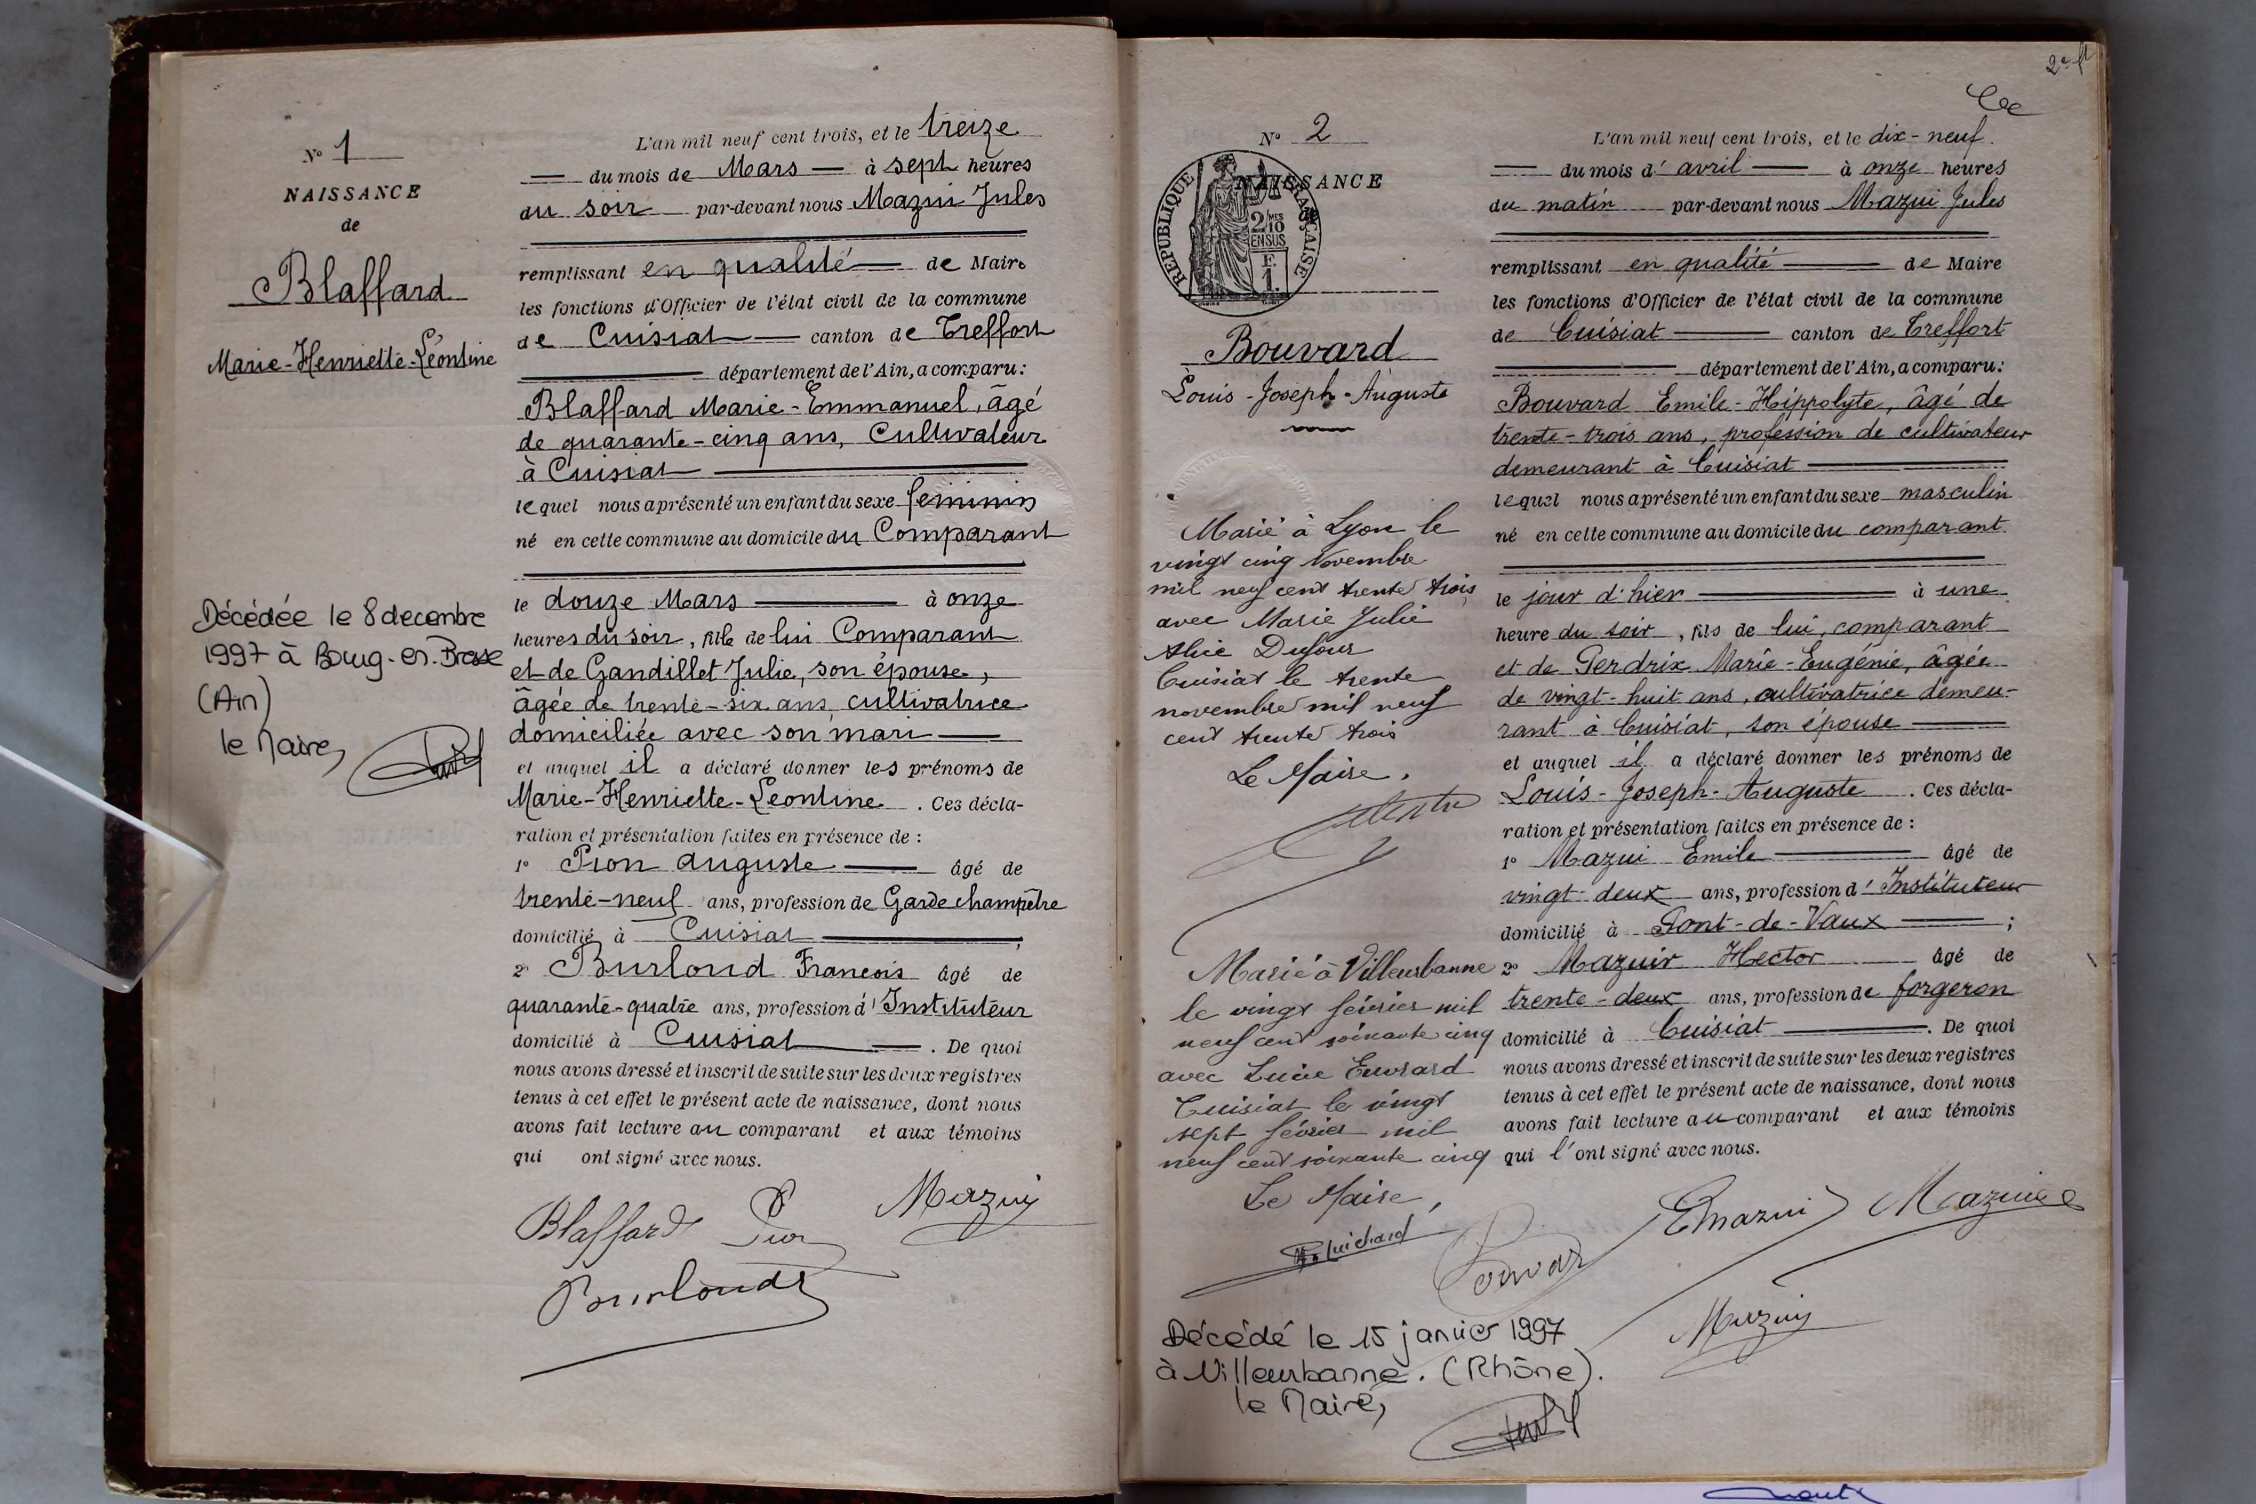 N° 1
NAISSANCE
de
Blaffard
Marie-Henriette-Léontine
Décédée le 8 decembre
1997 à Bourg-en-Bresse
(Ain)
le Maire,
L'an mil neuf cent trois, et le treize
du mois de Mars à sept heures
du soir par-devant nous Mazui Jules
remplissant en qualité de Maire
les fonctions d'Officier de l'état civil de la commune
de Cuisiat canton de Treffort
département de l'Ain, a comparu :
Blaffard Marie-Emmanuel, âgé
de quarante-cinq ans, Cultivateur
à Cuisiat
lequel nous a présenté un enfant du sexe féminin
né en cette commune au domicile du Comparant
le douze Mars à onze
heures du soir, fille de lui Comparant
et de Gandillet Julie, son épouse,
âgée de trente-six ans, cultivatrice
domiciliée avec son mari
et auquel il a déclaré donner les prénoms de
Marie-Henriette-Léontine. Ces décla-
ration et présentation faites en présence de :
1° Pion Auguste âgé de
trente-neuf ans, profession de Garde champêtre
domicilié à Cuisiat ;
2° Burloud François âgé de
quarante-quatre ans, profession d'Instituteur
domicilié à Cuisiat. De quoi
nous avons dressé et inscrit de suite sur les deux registres
tenus à cet effet le présent acte de naissance, dont nous
avons fait lecture au comparant et aux témoins
qui ont signé avec nous.
Blaffard Pion Mazuy
Bourloud
2e ft
N° 2
NAISSANCE
RÉPUBLIQUE FRANÇAISE
2/10 MES
EN SUS
F.
1.
Bouvard
Louis-Joseph-Auguste
Marié à Lyon le
vingt cinq Novembre
mil neuf cent trente trois
avec Marie Julie
Alice Dufour
Cuisiat le trente
novembre mil neuf
cent trente trois
Le Maire.
Marié à Villeurbanne
le vingt février mil
neuf cent soixante cinq
avec Lucie Euvrard
Cuisiat le vingt
sept février mil
neuf cent soixante cinq
Le Maire,
Guichard
Décédé le 15 janvier 1997
à Villeurbanne. (Rhône).
le Maire,
L'an mil neuf cent trois, et le dix-neuf
du mois d'avril à onze heures
du matin par-devant nous Mazui Jules
remplissant en qualité de Maire
les fonctions d'Officier de l'état civil de la commune
de Cuisiat canton de Treffort
département de l'Ain, a comparu :
Bouvard Emile-Hippolyte, âgé de
trente-trois ans, profession de cultivateur
demeurant à Cuisiat
lequel nous a présenté un enfant du sexe masculin
né en cette commune au domicile du comparant
le jour d'hier à une
heure du soir, fils de lui, comparant
et de Perdrix Marie-Eugénie, âgée
de vingt-huit ans, cultivatrice demeu-
rant à Cuisiat, son épouse
et auquel il a déclaré donner les prénoms de
Louis-Joseph-Auguste. Ces décla-
ration et présentation faites en présence de :
1° Mazui Emile âgé de
vingt-deux ans, profession d'Instituteur
domicilié à Pont-de-Vaux ;
2° Mazuir Hector âgé de
trente-deux ans, profession de forgeron
domicilié à Cuisiat. De quoi
nous avons dressé et inscrit de suite sur les deux registres
tenus à cet effet le présent acte de naissance, dont nous
avons fait lecture au comparant et aux témoins
qui l'ont signé avec nous.
Bouvard EMazui Mazuire
Mazuy